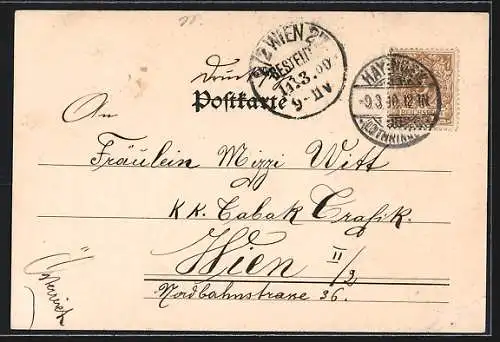 Drucks.
Postkarte
WIEN 2/
BESTELLT
11.3.00
9-11V
-9.3.00.12-1N
An
Fräulein Mizzi Witt
K.K. Tabak Trafik.
Wien II/2
Nordbahnstrasse 36.
Österreich